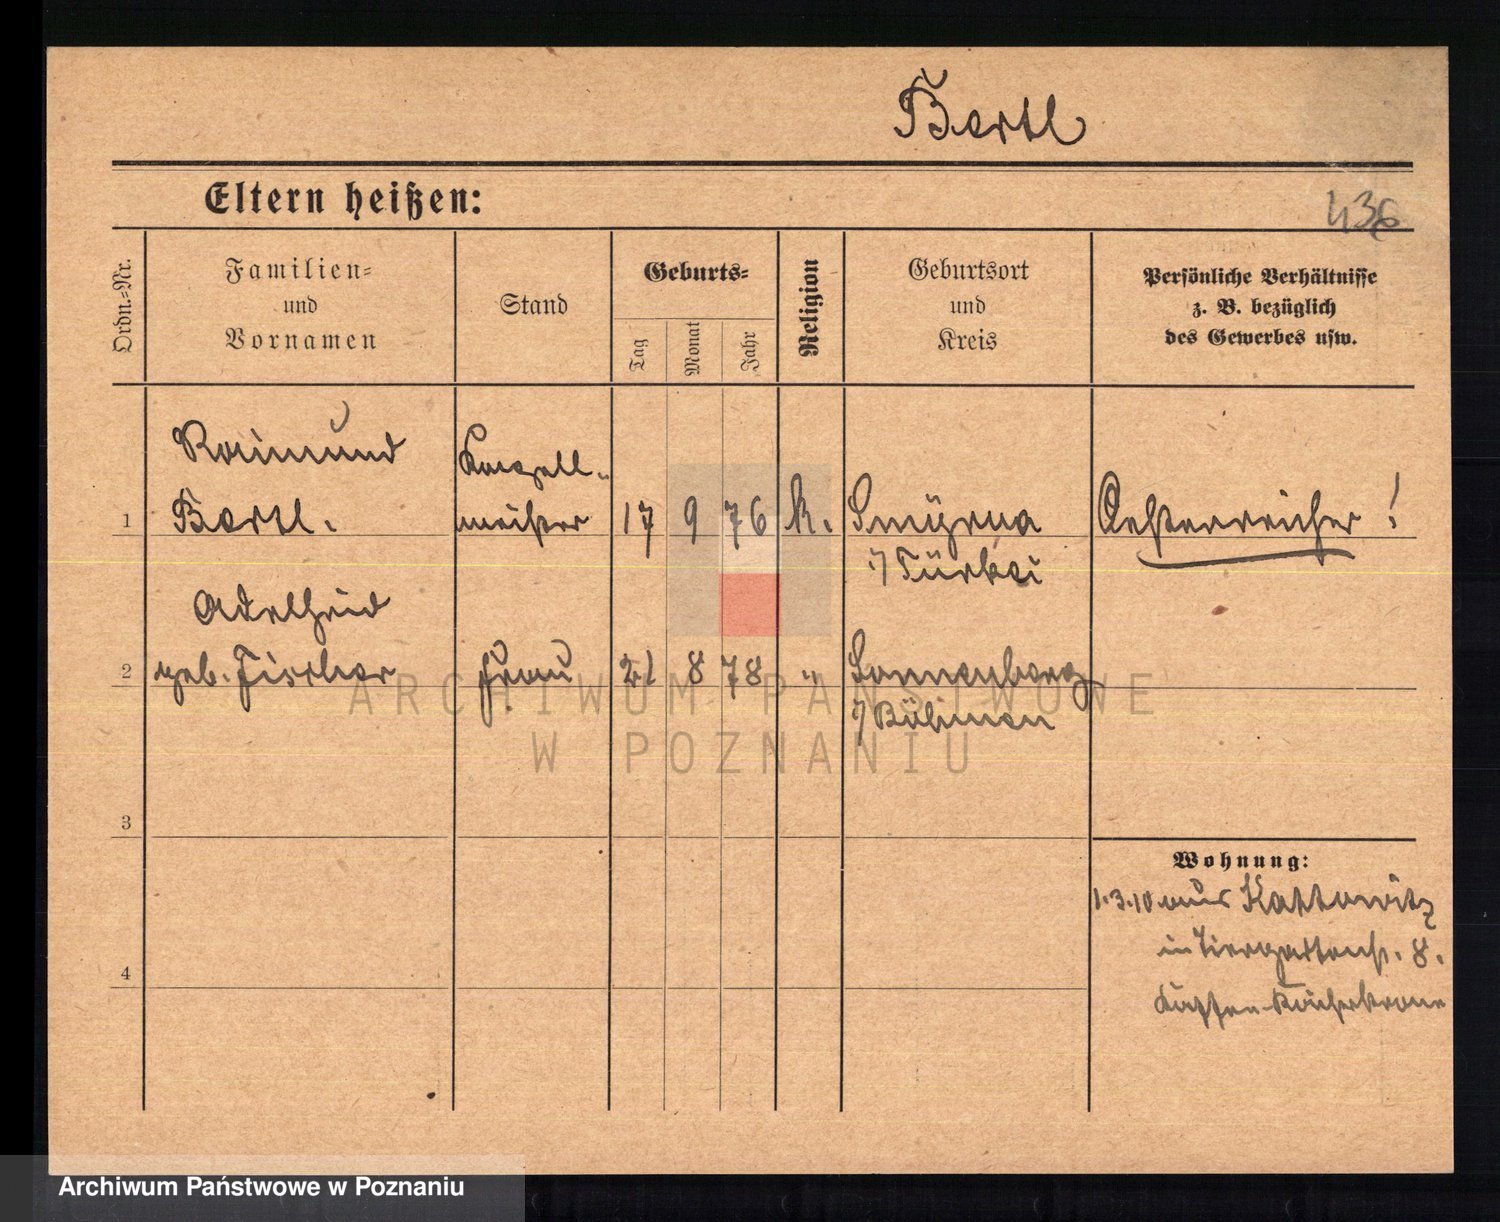 Bartl
Eltern heißen:
436
Ordn.-Nr.
Familien-
und
Vornamen
Stand
Geburts-
Tag
Monat
Jahr
Religion
Geburtsort
und
Kreis
Persönliche Verhältnisse
z. B. bezüglich
des Gewerbes usw.
1
Raimund
Bartl.
Kapell-
meister
17 9 76 k.
Smÿrna
i/Türkei
Oesterreicher!
2
Adelheid
geb. Fischer
Frau
21 8 78 "
Sonnenberg
i/Böhmen
3
4
Wohnung:
1.3.10 aus Kattowitz
in Tiergartenstr. 8.
Kaiserkrone
ARCHIWUM PAŃSTWOWE
W POZNANIU
Archiwum Państwowe w Poznaniu